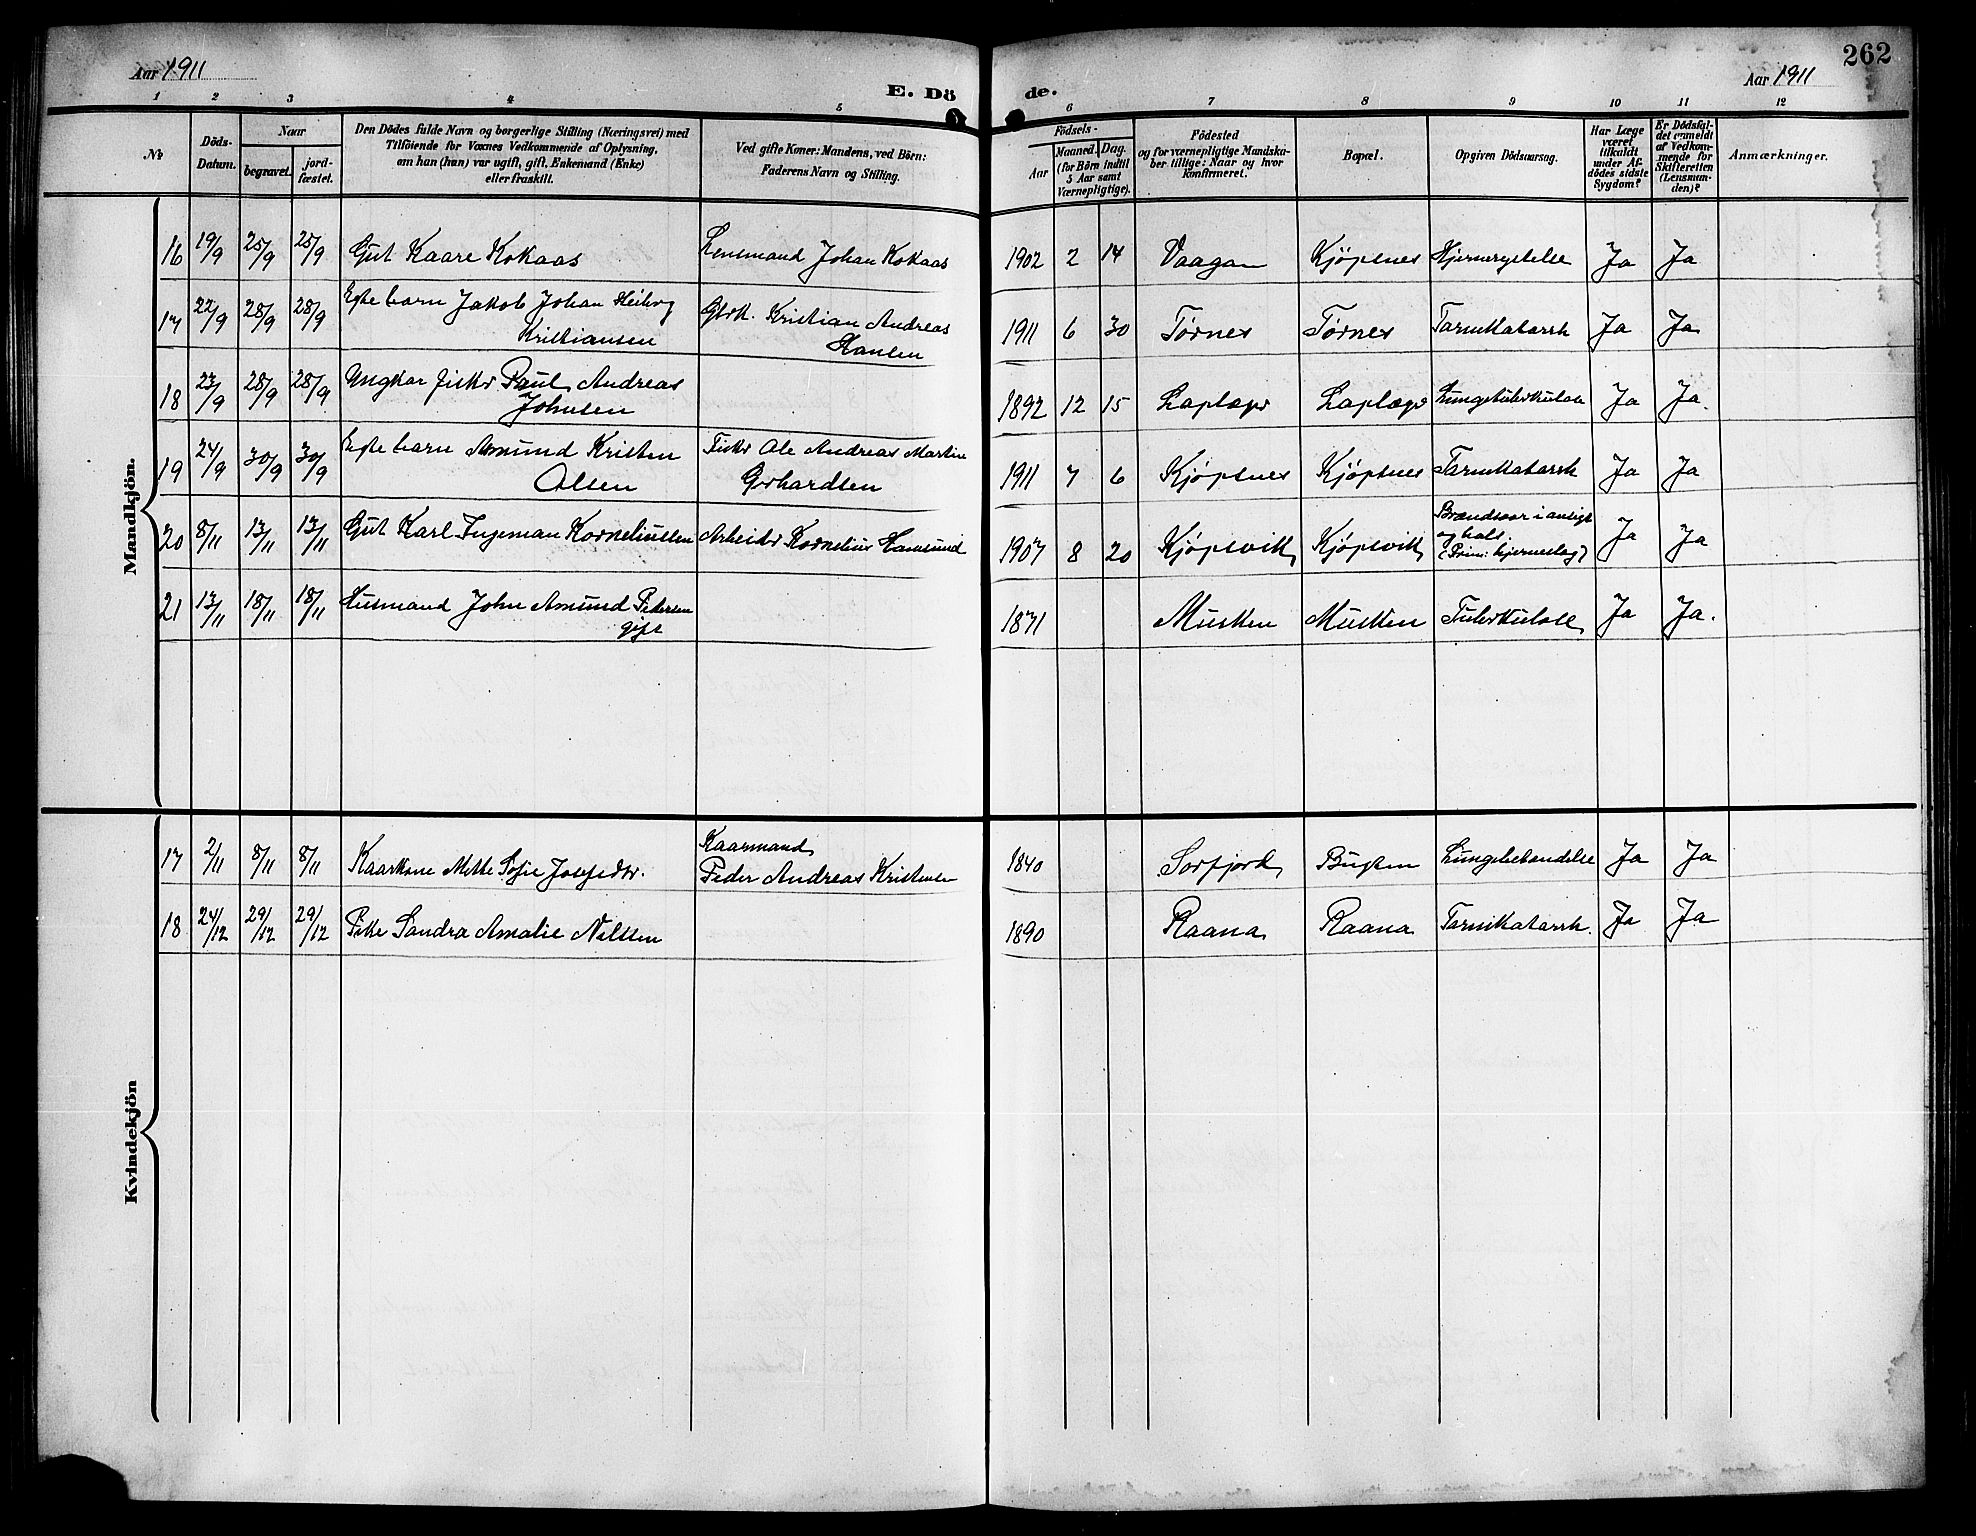 262
Aar 1911
Aar 1911
E. Dö de.
1 2 3 4 5 6 7 8 9 10 11 12
No.
Döds-
Datum.
Naar
begravet.
jord-
fæstet.
Den Dödes fulde Navn og borgerlige Stilling (Næringsvei) med
Tilföiende for Voxnes Vedkommende af Oplysning,
om han (hun) var ugift, gift, Enkemand (Enke)
eller fraskilt.
Ved gifte Koner: Mandens, ved Börn:
Faderens Navn og Stilling.
Födsels-
Aar
Maaned. Dag.
(for Börn indtil
5 Aar samt
Værnepligtige).
Födested
og for værnepligtige Mandska-
ber tillige: Naar og hvor
konfirmeret.
Bopæl.
Opgiven Dödsaarsag.
Har Læge
været
tilkaldt
under Af-
dödes sidste
Sygdom?
Er Dödsfal-
det anmeldt
af Vedkom-
mende for
Skifteretten
(Lensman-
den)?
Anmærkninger.
Mandkjön.
16 19/9 25/9 25/9 Gut Kaare Kokaas Lensmand Johan Kokaas 1902 2 14 Vaagan Kjöpsnes Hjernerystelse Ja Ja
17 22/9 28/9 28/9 Egte barn Jakob Johan Heiberg Gbrk. Kristian Andreas 1911 6 30 Tørnes Tørnes Tarmkatarrh Ja Ja
Kristiansen Hansen
18 23/9 28/9 28/9 Ungkar fisker Paul Andreas 1892 12 15 Laplæger Laplæger Lungetuberkulose Ja Ja.
Johnsen
19 24/9 30/9 30/9 Egte barn Amund Kristen Fisker Ole Andreas Martin 1911 7 6 Kjöpsnes Kjöpsnes Tarmkatarrh Ja Ja
Olsen Gerhardsen
20 8/11 13/11 13/11 Gut Karl Ingeman Korneliussen Arbeider Kornelius Hamsund 1907 8 20 Kjöpsvik Kjöpsvik Brandsaar i ansigt Ja Ja
og hals.
(Prim: hjerneslag)
21 13/11 18/11 18/11 Husmand John Amund Pedersen 1871 Musken Musken Tuberkulose Ja Ja.
gift
Kvindekjön
17 2/11 8/11 8/11 Kaarkone Mette Sofie Josefsdtr. Kaarmand 1840 Sørfjord Bugten Lungebetændelse Ja Ja
Peder Andreas Kristensen
18 24/12 29/12 29/12 Pike Sandra Amalie Nilsen 1890 Raana Raana Tarmkatarrh. Ja Ja